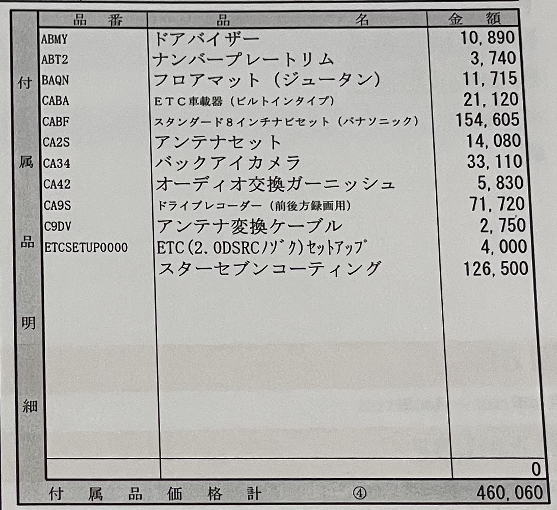 付属品明細
品番 品名 金額
ABMY ドアバイザー 10,890
ABT2 ナンバープレートリム 3,740
BAQN フロアマット（ジュータン） 11,715
CABA ＥＴＣ車載器（ビルトインタイプ） 21,120
CABF スタンダード８インチナビセット（パナソニック） 154,605
CA2S アンテナセット 14,080
CA34 バックアイカメラ 33,110
CA42 オーディオ交換ガーニッシュ 5,830
CA9S ドライブレコーダー（前後方録画用） 71,720
C9DV アンテナ変換ケーブル 2,750
ETCSETUP0000 ETC(2.0DSRCﾉｿﾞｸ)ｾｯﾄｱｯﾌﾟ 4,000
スターセブンコーティング 126,500
0
付属品価格計 ④ 460,060